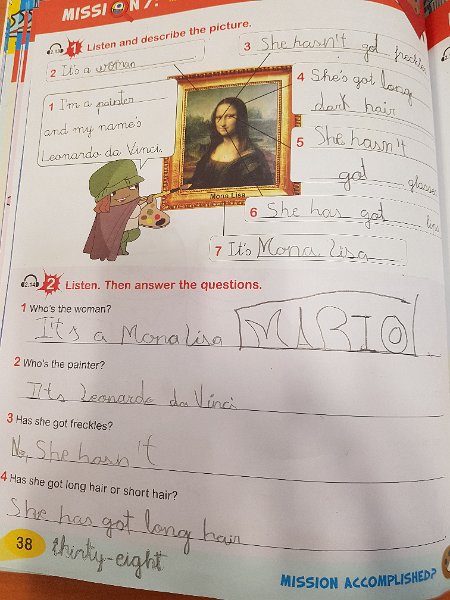 MISSION 7:
2.13 1 Listen and describe the picture.
2 It's a woman
3 She hasn't got freckles
1 I'm a painter
and my name's
Leonardo da Vinci.
4 She's got long
dark hair
5 She hasn't
got glasses
Mona Lisa
6 She has got
7 It's Mona lisa
2.14 2 Listen. Then answer the questions.
1 Who's the woman?
It's a Mona lisa MARIO
2 Who's the painter?
It's Leonardo da Vinci
3 Has she got freckles?
No, She hasn't
4 Has she got long hair or short hair?
She has got long hair
38 thirty-eight
MISSION ACCOMPLISHED?